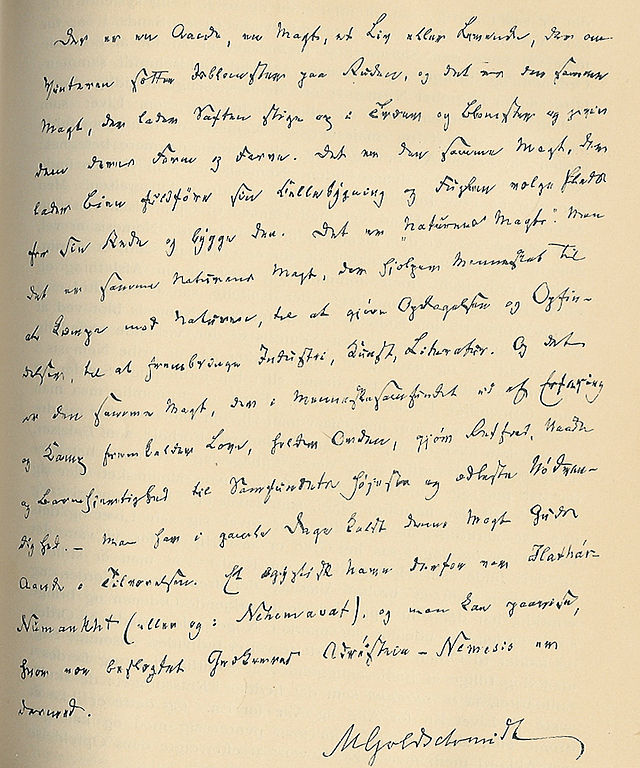 Der er en Aande, en Magt, et Liv eller Levende, der om
Vinteren sætter Isblomster paa Ruden, og det er den samme
Magt, der lader Saften stige op i Træer og Blomster og giver
dem deres Form og Farve. Det er den samme Magt, der
lader Bien fuldføre sin Cellebygning og Fuglen vælge Plads
for sin Rede og bygge den. Det er "Naturens Magt". Men
det er samme Naturens Magt, der hjælper Mennesket til
at kæmpe mod Naturen, til at gjøre Opdagelser og Opfin-
delser, til at frembringe Industri, Kunst, Literatur. Og det
er den samme Magt, der i Menneskesamfundet ud af Erfaring
og Kamp fremkalder Love, holder Orden, gjør Retfærd, Naade
og Barmhjertighed til Samfundets højeste og ædleste Nødven-
dighed. – Man har i gamle Dage kaldt denne Magt Guds
Aande i Tilværelsen. Et ægyptisk Navn derfor var Hathór-
Númankht (eller og: Nehemavat), og man kan paavise,
hvor nær beslægtet Grækernes Adrásteia – Nemesis er
dermed.
MGoldschmidt